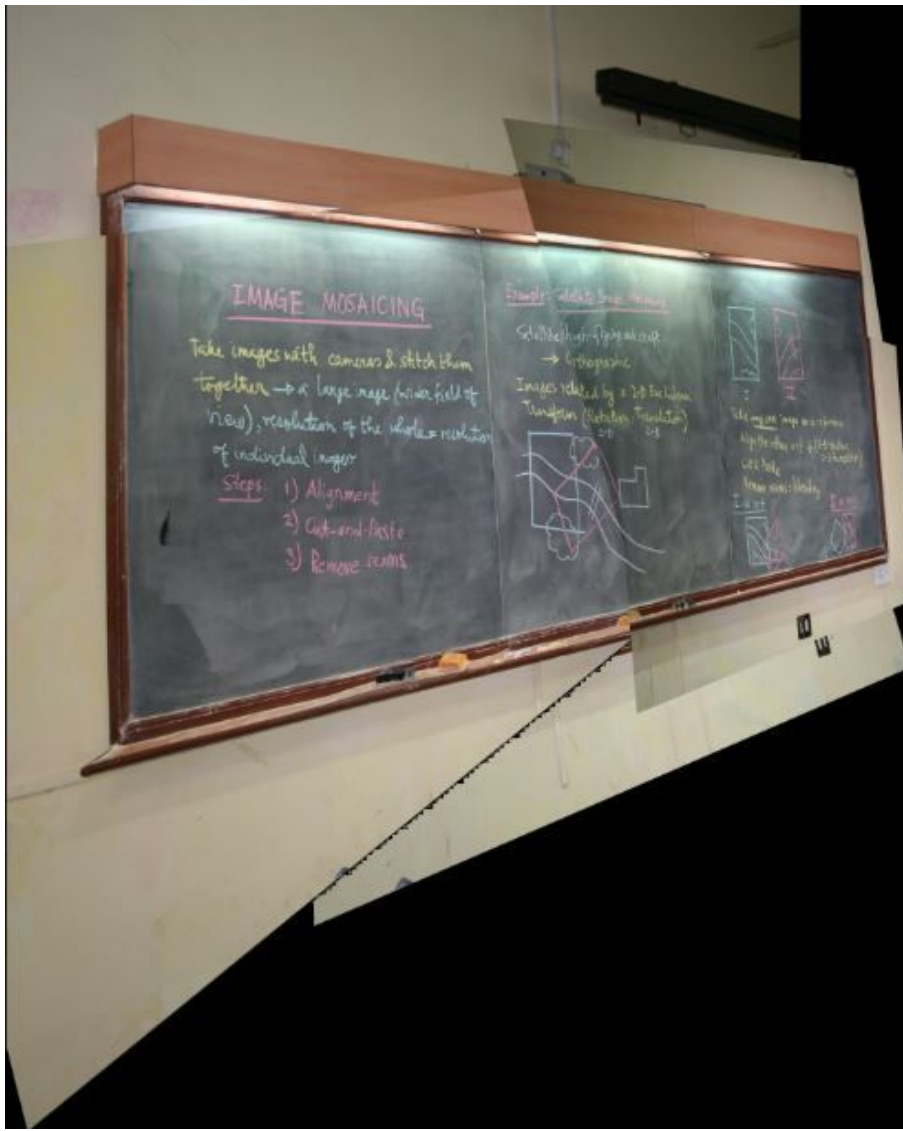 IMAGE MOSAICING
Take images with cameras & stitch them
together → a large image (wider field of
view), resolution of the whole = resolution
of individual images
Steps: 1) Alignment
2) Cut-and-Paste
3) Remove seams
Example: Satellite Image Mosaicing
Satellite/high-flying aircraft
→ Orthographic
Images related by a 2-D Euclidean
Transform (Rotation, Translation)
2-D 2-D
I
I
Take any one image as reference
Align the other
Cut & Paste
Remove seams: blending